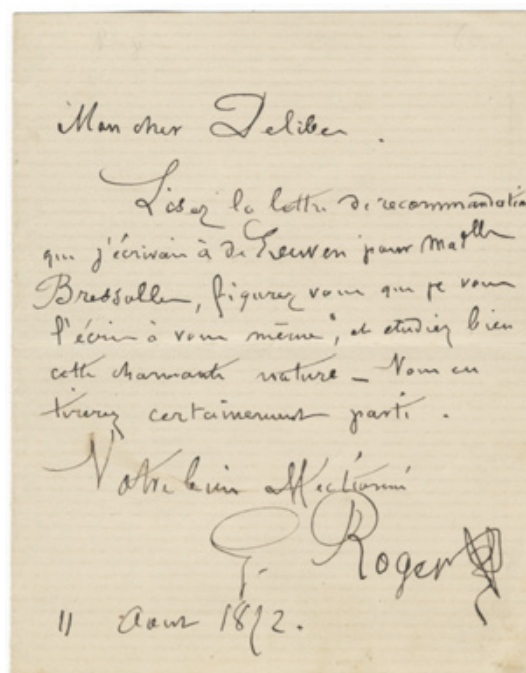 Mon cher Delibes.
Lisez la lettre de recommandation
que j'écrivais à de Leuven pour Melle
Bressolles, figurez vous que je vous
l'écris à vous même, et etudiez bien
cette charmante nature _ Vous en
tirerez certainement parti.
Votre bien affectionné
G. Roger
11 Aout 1872.